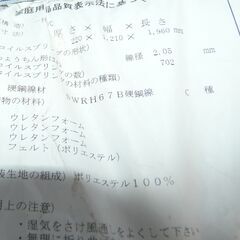 家庭用品品質表示法に基づ
構造
厚さ×幅×長さ
220×1,210×1,960mm
コイルスプリングの形状)
線径 2.05 mm
コイルスプリングの数)
702
の材料の種類)
硬鋼線材 SWRH67B硬鋼線 C種
物の材料)
ウレタンフォーム
ウレタンフォーム
ウレタンフォーム
フェルト(ポリエステル)
装生地の組成)ポリエステル100%
用上の注意)
・湿気をさけ風通しをよくして下さい
・無理に折り曲